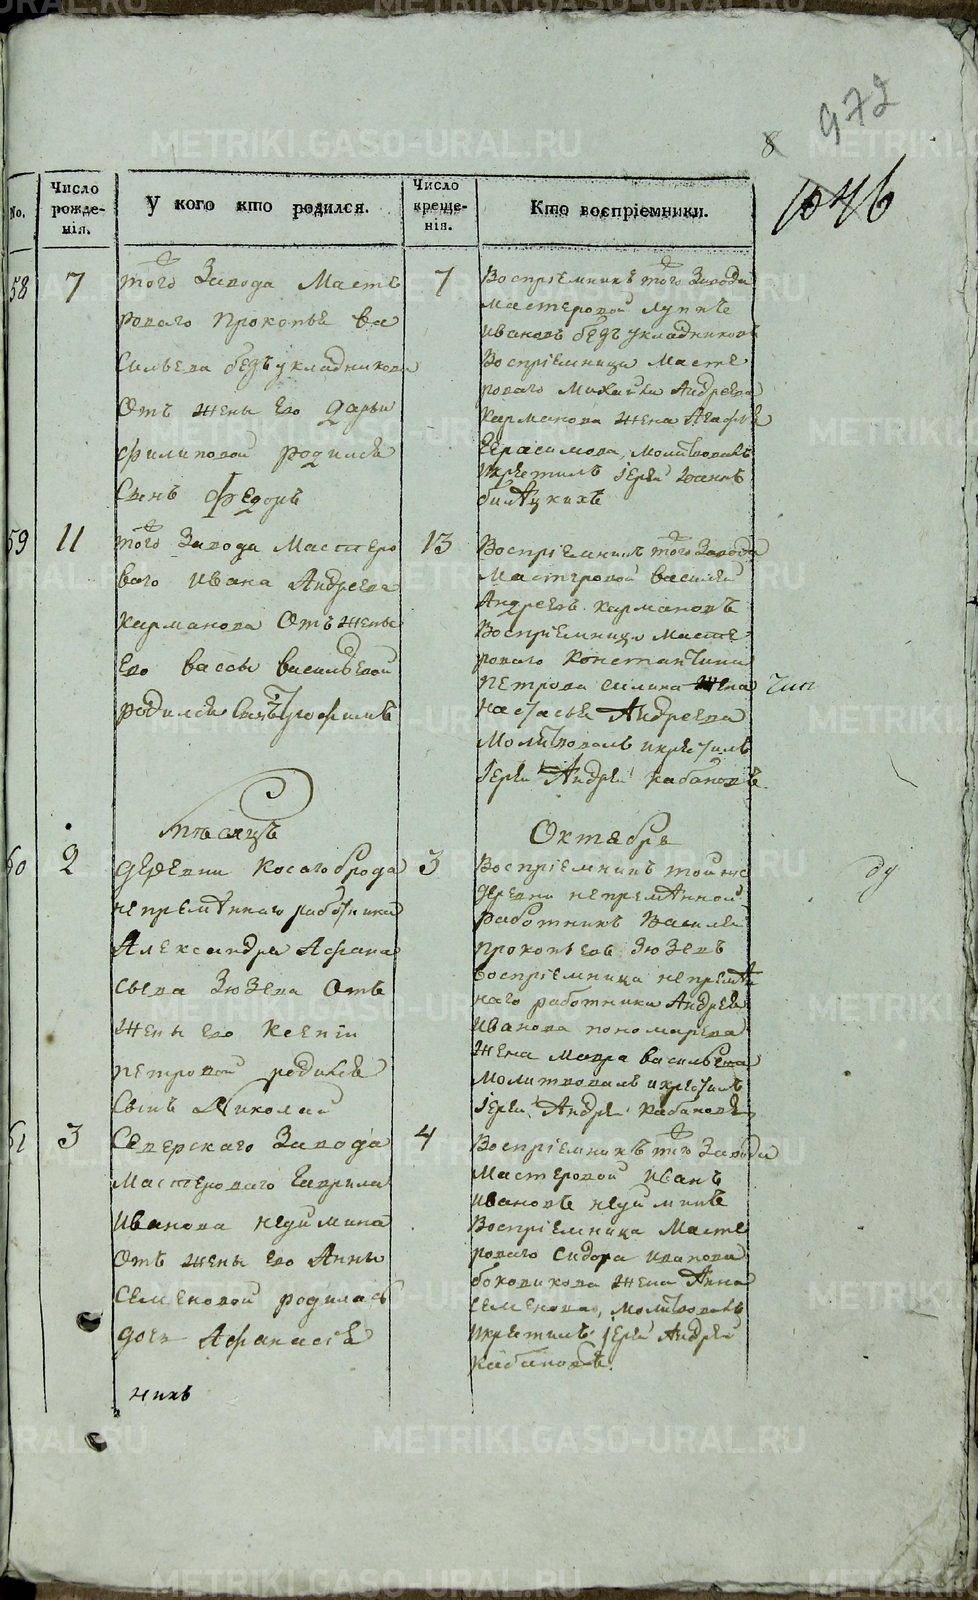 972
8
1046
No.
Число рожде-нія.
У кого кто родился.
Число креще-нія.
Кто воспріемники.
58
7
того Завода Масте
роваго Прокопья Ва
сильева безъукладникова
Отъ жены Его Дарьи
филиповой родился
Сынъ Федоръ
7
Воспріемникъ того Завода
мастеровой
ивановъ безъукладниковъ
Воспріемница масте
роваго Михайла Андреева
карманова жена Агафья
Герасимова, молитвовалъ
икрестилъ іерей Іоаннъ
59
11
того Завода Мастеро
ваго Ивана Андреева
карманова Отъ жены
Его вассы васильевой
родился сынъ трофимъ
13
Воспріемникъ того Завода
мастеровой василей
Андреевъ кармановъ
Воспріемница масте
роваго константина
петрова жена
настасья Андреева
молитвовалъ икрестилъ
іерей Андрей кабановъ
месяцъ
Октябрь
60
2
деревни косаго брода
непремѣннаго работника
Александра Афана
сьева Зюзева Отъ
жены его ксеніи
петровой родился
Сынъ Николай
3
Воспріемникъ тойже
деревни непремѣнной
работникъ Василей
прокопьевъ Зюзевъ
воспріемница непремѣн
наго работника Андрея
иванова пономарева
жена мавра васильева
молитвовалъ икрестилъ
іерей Андрей кабановъ
61
3
Северскаго Завода
мастероваго гаврила
иванова
Отъ жены его Анны
семеновой родилась
дочь Афанасія
4
Воспріемникъ того Завода
мастеровой иванъ
ивановъ
Воспріемница масте
роваго сидора иванова
боковикова жена Анна
семенова, молитвовалъ
икрестилъ іерей Андрей
кабановъ.
METRIKI.GASO-URAL.RU